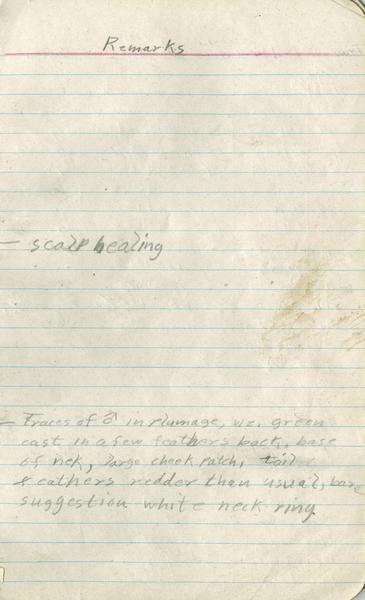 Remarks
— scalp healing
— Traces of ♂ in plumage, viz. green
cast in a few feathers back, base
of nek, large cheek patch, tail
feathers redder than usual, bare
suggestion white neck ring.